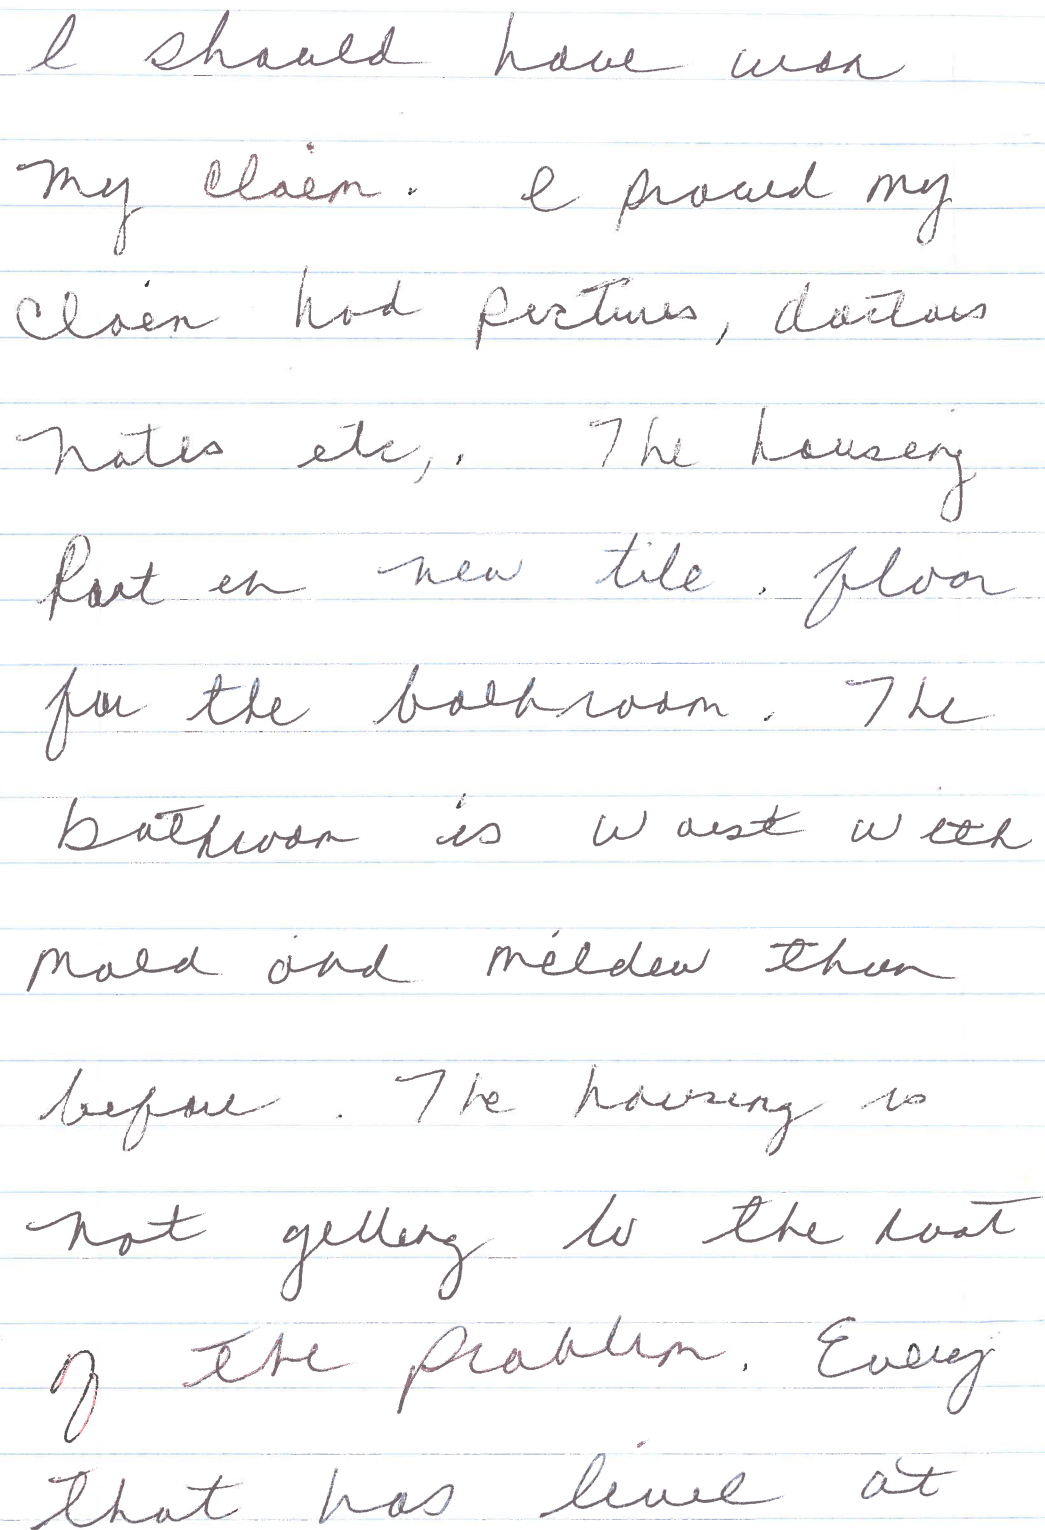 I should have won
my claim. I proved my
claim had pictures, doctors
notes etc,. The housing
Part in new tile. floor
for the bathroom. The
bathroom is worst with
mold and mildew than
before. The housing is
not getting to the root
of the problem. Every
that has live at